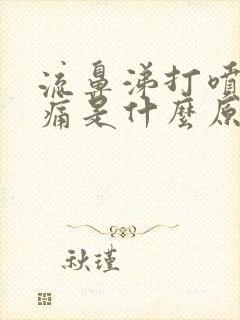 流鼻涕打噴
痛是什麼原
秋瑾